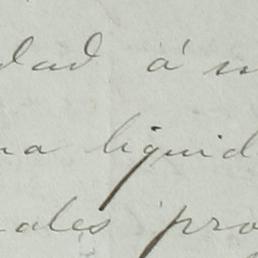 dad á n
na liquid
ales pro